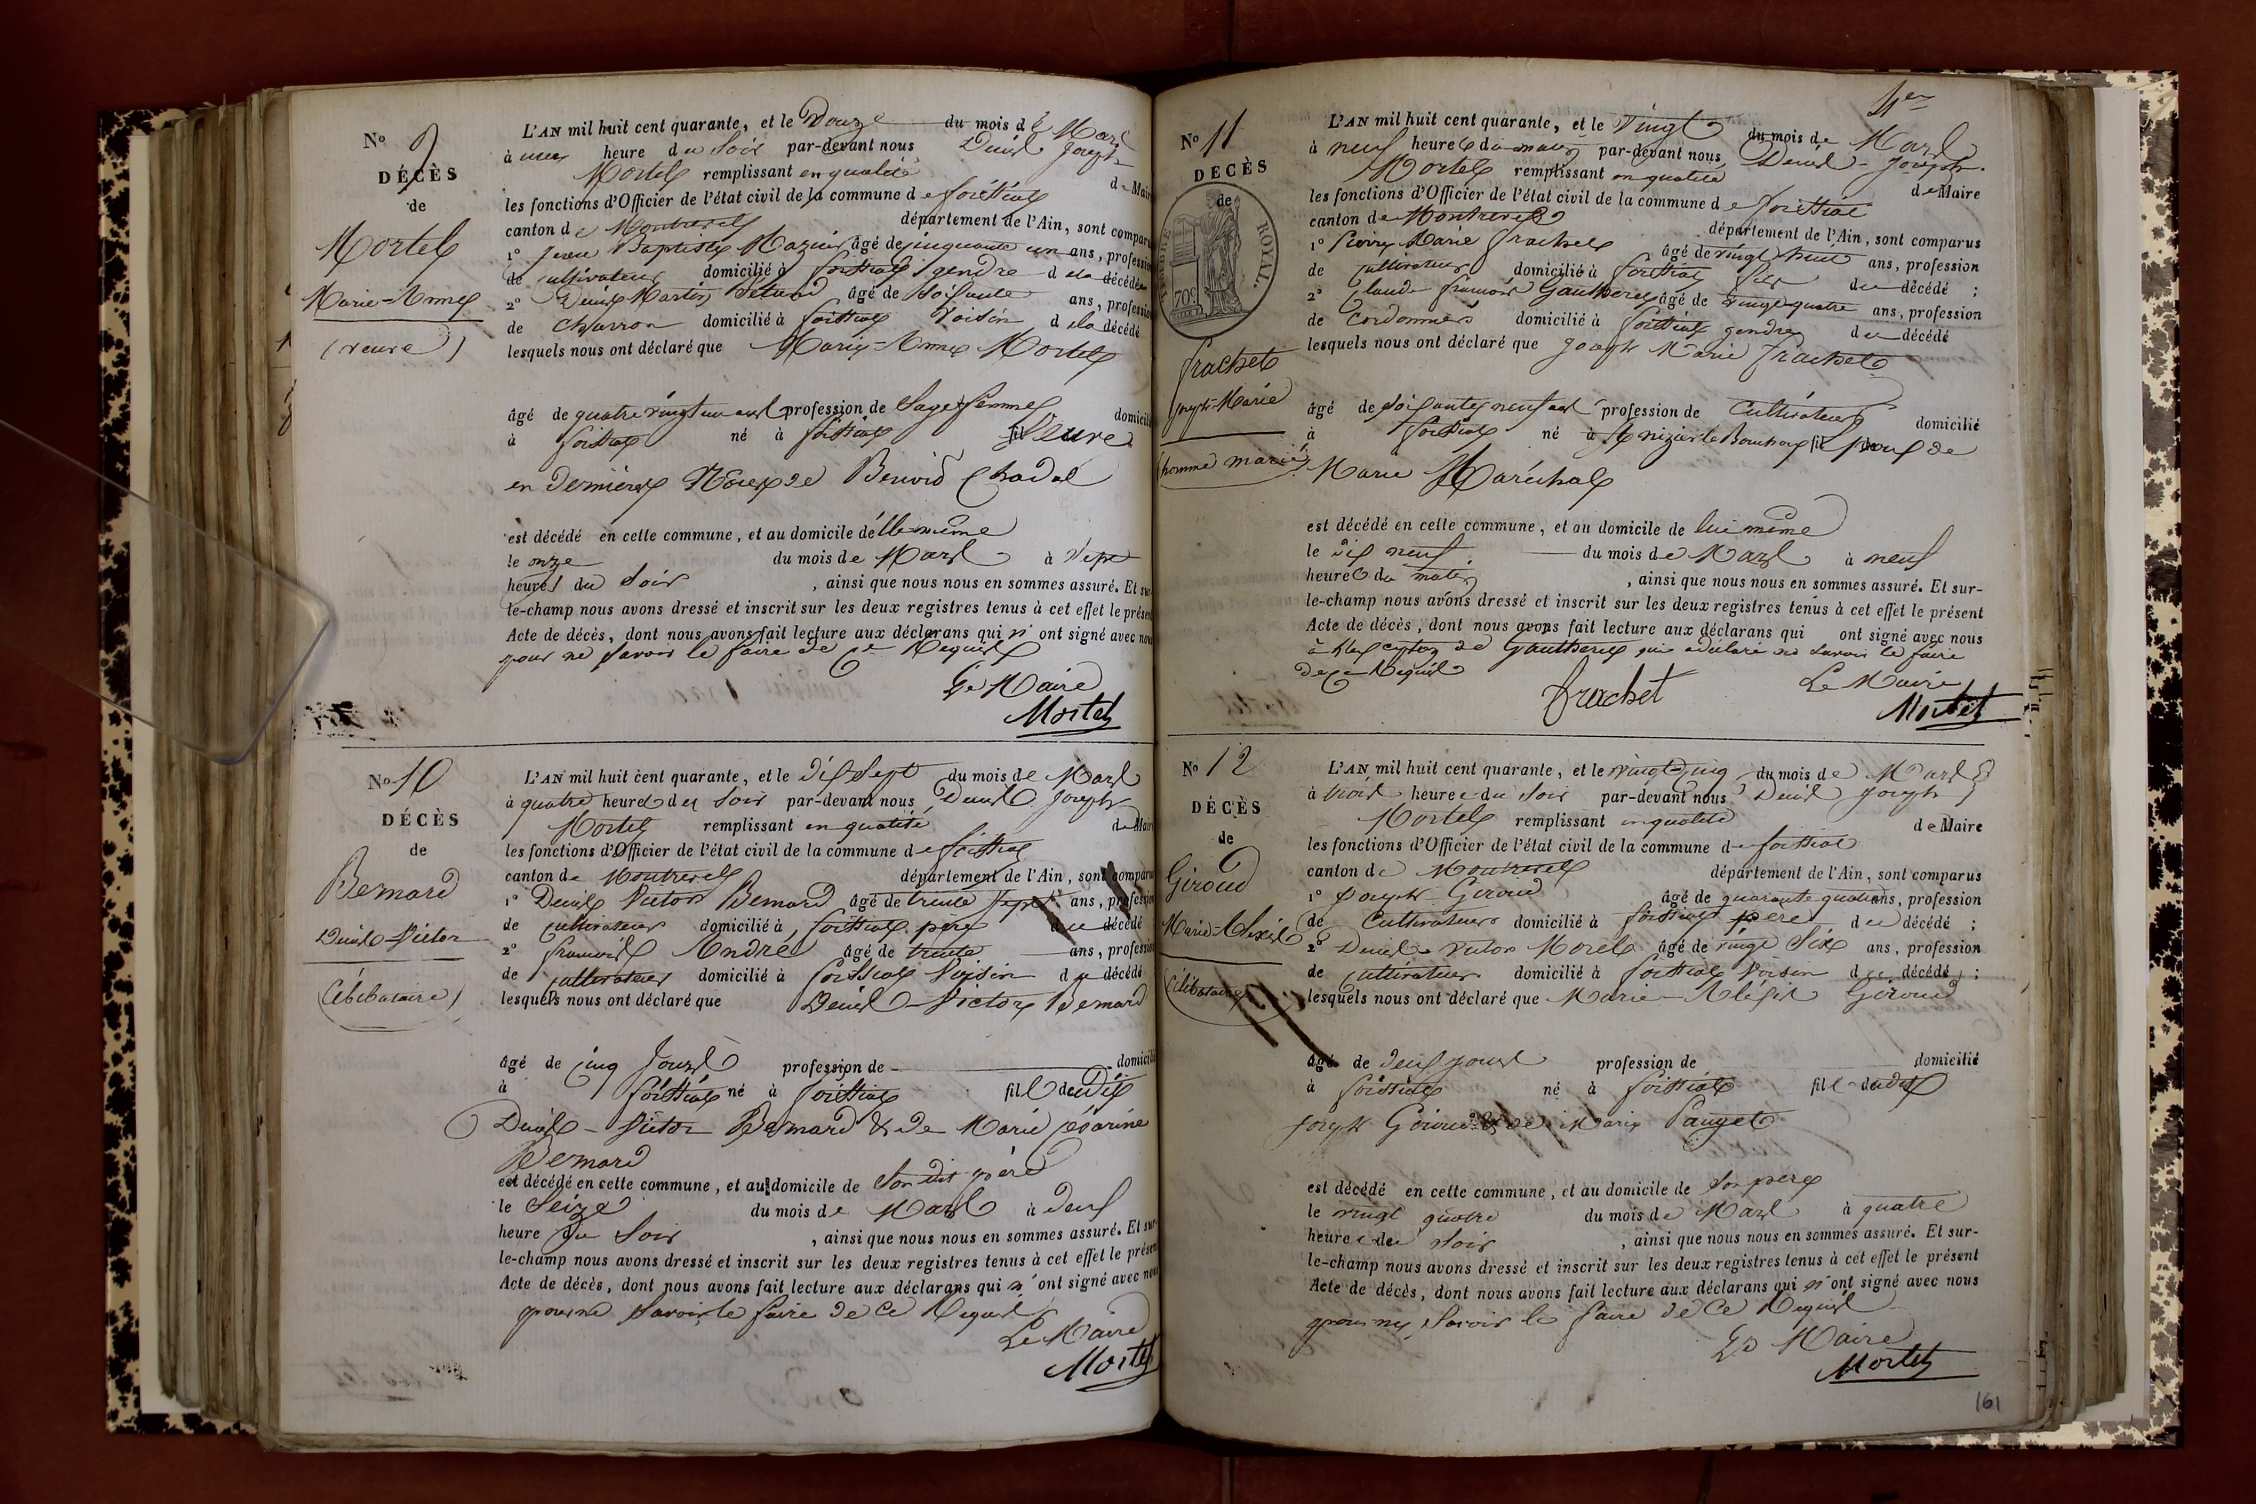 No 9
DÉCÈS
de
Mortel
Marie-Anne
(veuve)
L'AN mil huit cent quarante, et le Douze du mois de Mars
à une heure du Soir par-devant nous Denis Joseph
Mortel remplissant en qualité de Maire
les fonctions d'Officier de l'état civil de la commune de foissiat
canton de Montrevel département de l'Ain, sont comparu
1° Jean Baptiste âgé de cinquante un ans, profession
de cultivateur domicilié à foissiat gendre de la décédée
2° Denis Martin âgé de Soisante ans, profession
de Charron domicilié à foissiat Voisin de la décédé
lesquels nous ont déclaré que Marie-Anne Mortel
âgé de quatre vingt un ans profession de Sage femme domicilié
à foissiat né à foissiat fil Veuve
en dernières Noces de Benoid Chadal
est décédé en cette commune, et au domicile de elle même
le onze du mois de Mars à Sept
heures du Soir, ainsi que nous nous en sommes assuré. Et sur-
le-champ nous avons dressé et inscrit sur les deux registres tenus à cet effet le présent
Acte de décès, dont nous avons fait lecture aux déclarans qui n'ont signé avec nous
pour ne Savoir le faire de ce Requis
Le Maire
Mortel
No 10
DÉCÈS
de
Bernard
Denis-Victor
(Célibataire)
L'AN mil huit cent quarante, et le Dix Sept du mois de Mars
à quatre heures du Soir par-devant nous Denis Joseph
Mortel remplissant en qualité de Maire
les fonctions d'Officier de l'état civil de la commune de foissiat
canton de Montrevel département de l'Ain, sont comparu
1° Denis Victor Bernard âgé de trente Sept ans, profession
de cultivateur domicilié à foissiat père du décédé
2° francois André âgé de trente ans, profession
de cultivateur domicilié à foissiat Voisin du décédé
lesquels nous ont déclaré que Denis-Victor Bernard
âgé de cinq Jours profession de domicilié
à foissiat né à foissiat fils dudit
Denis-Victor Bernard & de Marie Césarine
Bernard
est décédé en cette commune, et au domicile de Son dit père
le Seize du mois de Mars à deux
heure du Soir, ainsi que nous nous en sommes assuré. Et sur-
le-champ nous avons dressé et inscrit sur les deux registres tenus à cet effet le présent
Acte de décès, dont nous avons fait lecture aux déclarans qui n'ont signé avec nous
pour ne Savoir le faire de ce Requis
Le Maire
Mortel
No 11
DÉCÈS
de
TIMBRE ROYAL.
70c
frachet
Joseph-Marie
(homme marié)
L'AN mil huit cent quarante, et le Vingt du mois de Mars
à neuf heures du matin par-devant nous Denis-Joseph
Mortel remplissant en qualité de Maire
les fonctions d'Officier de l'état civil de la commune de foissiat
canton de Montrevel département de l'Ain, sont comparus
1° Pierre Marie frachet âgé de vingt huit ans, profession
de cultivateur domicilié à foissiat fils du décédé ;
2° Claude francois Gautheret âgé de vingt quatre ans, profession
de Cordonnier domicilié à foissiat gendre du décédé
lesquels nous ont déclaré que Joseph Marie frachet
âgé de Soisante neuf ans profession de Cultivateur domicilié
à foissiat né à St nizier le Bouchoux fil Epoux de
Marie Maréchal
est décédé en cette commune, et au domicile de lui même
le dix neuf du mois de Mars à neuf
heures du matin, ainsi que nous nous en sommes assuré. Et sur-
le-champ nous avons dressé et inscrit sur les deux registres tenus à cet effet le présent
Acte de décès, dont nous avons fait lecture aux déclarans qui ont signé avec nous
à l'exception de Gautheret qui a déclaré ne Savoir le faire
de ce Requis
frachet
Le Maire
Mortel
No 12
DÉCÈS
de
Giroud
Marie-Alexis
(Célibataire)
L'AN mil huit cent quarante, et le vingt cinq du mois de Mars
à trois heures du Soir par-devant nous Denis Joseph
Mortel remplissant en qualité de Maire
les fonctions d'Officier de l'état civil de la commune de foissiat
canton de Montrevel département de l'Ain, sont comparus
1° Joseph Giroud âgé de quarante quatre ans, profession
de Cultivateur domicilié à foissiat père du décédé ;
2° Denis Victor Morel âgé de vingt Six ans, profession
de cultivateur domicilié à foissiat Voisin du décédé ;
lesquels nous ont déclaré que Marie-Alexis Giroud
âgé de deux jours profession de domicilié
à foissiat né à foissiat fils dudit
Joseph Giroud & de Marie Panget
est décédé en cette commune, et au domicile de Son père
le vingt quatre du mois de Mars à quatre
heures du Soir, ainsi que nous nous en sommes assuré. Et sur-
le-champ nous avons dressé et inscrit sur les deux registres tenus à cet effet le présent
Acte de décès, dont nous avons fait lecture aux déclarans qui n'ont signé avec nous
pour ne Savoir le faire de ce Requis
Le Maire
Mortel
161